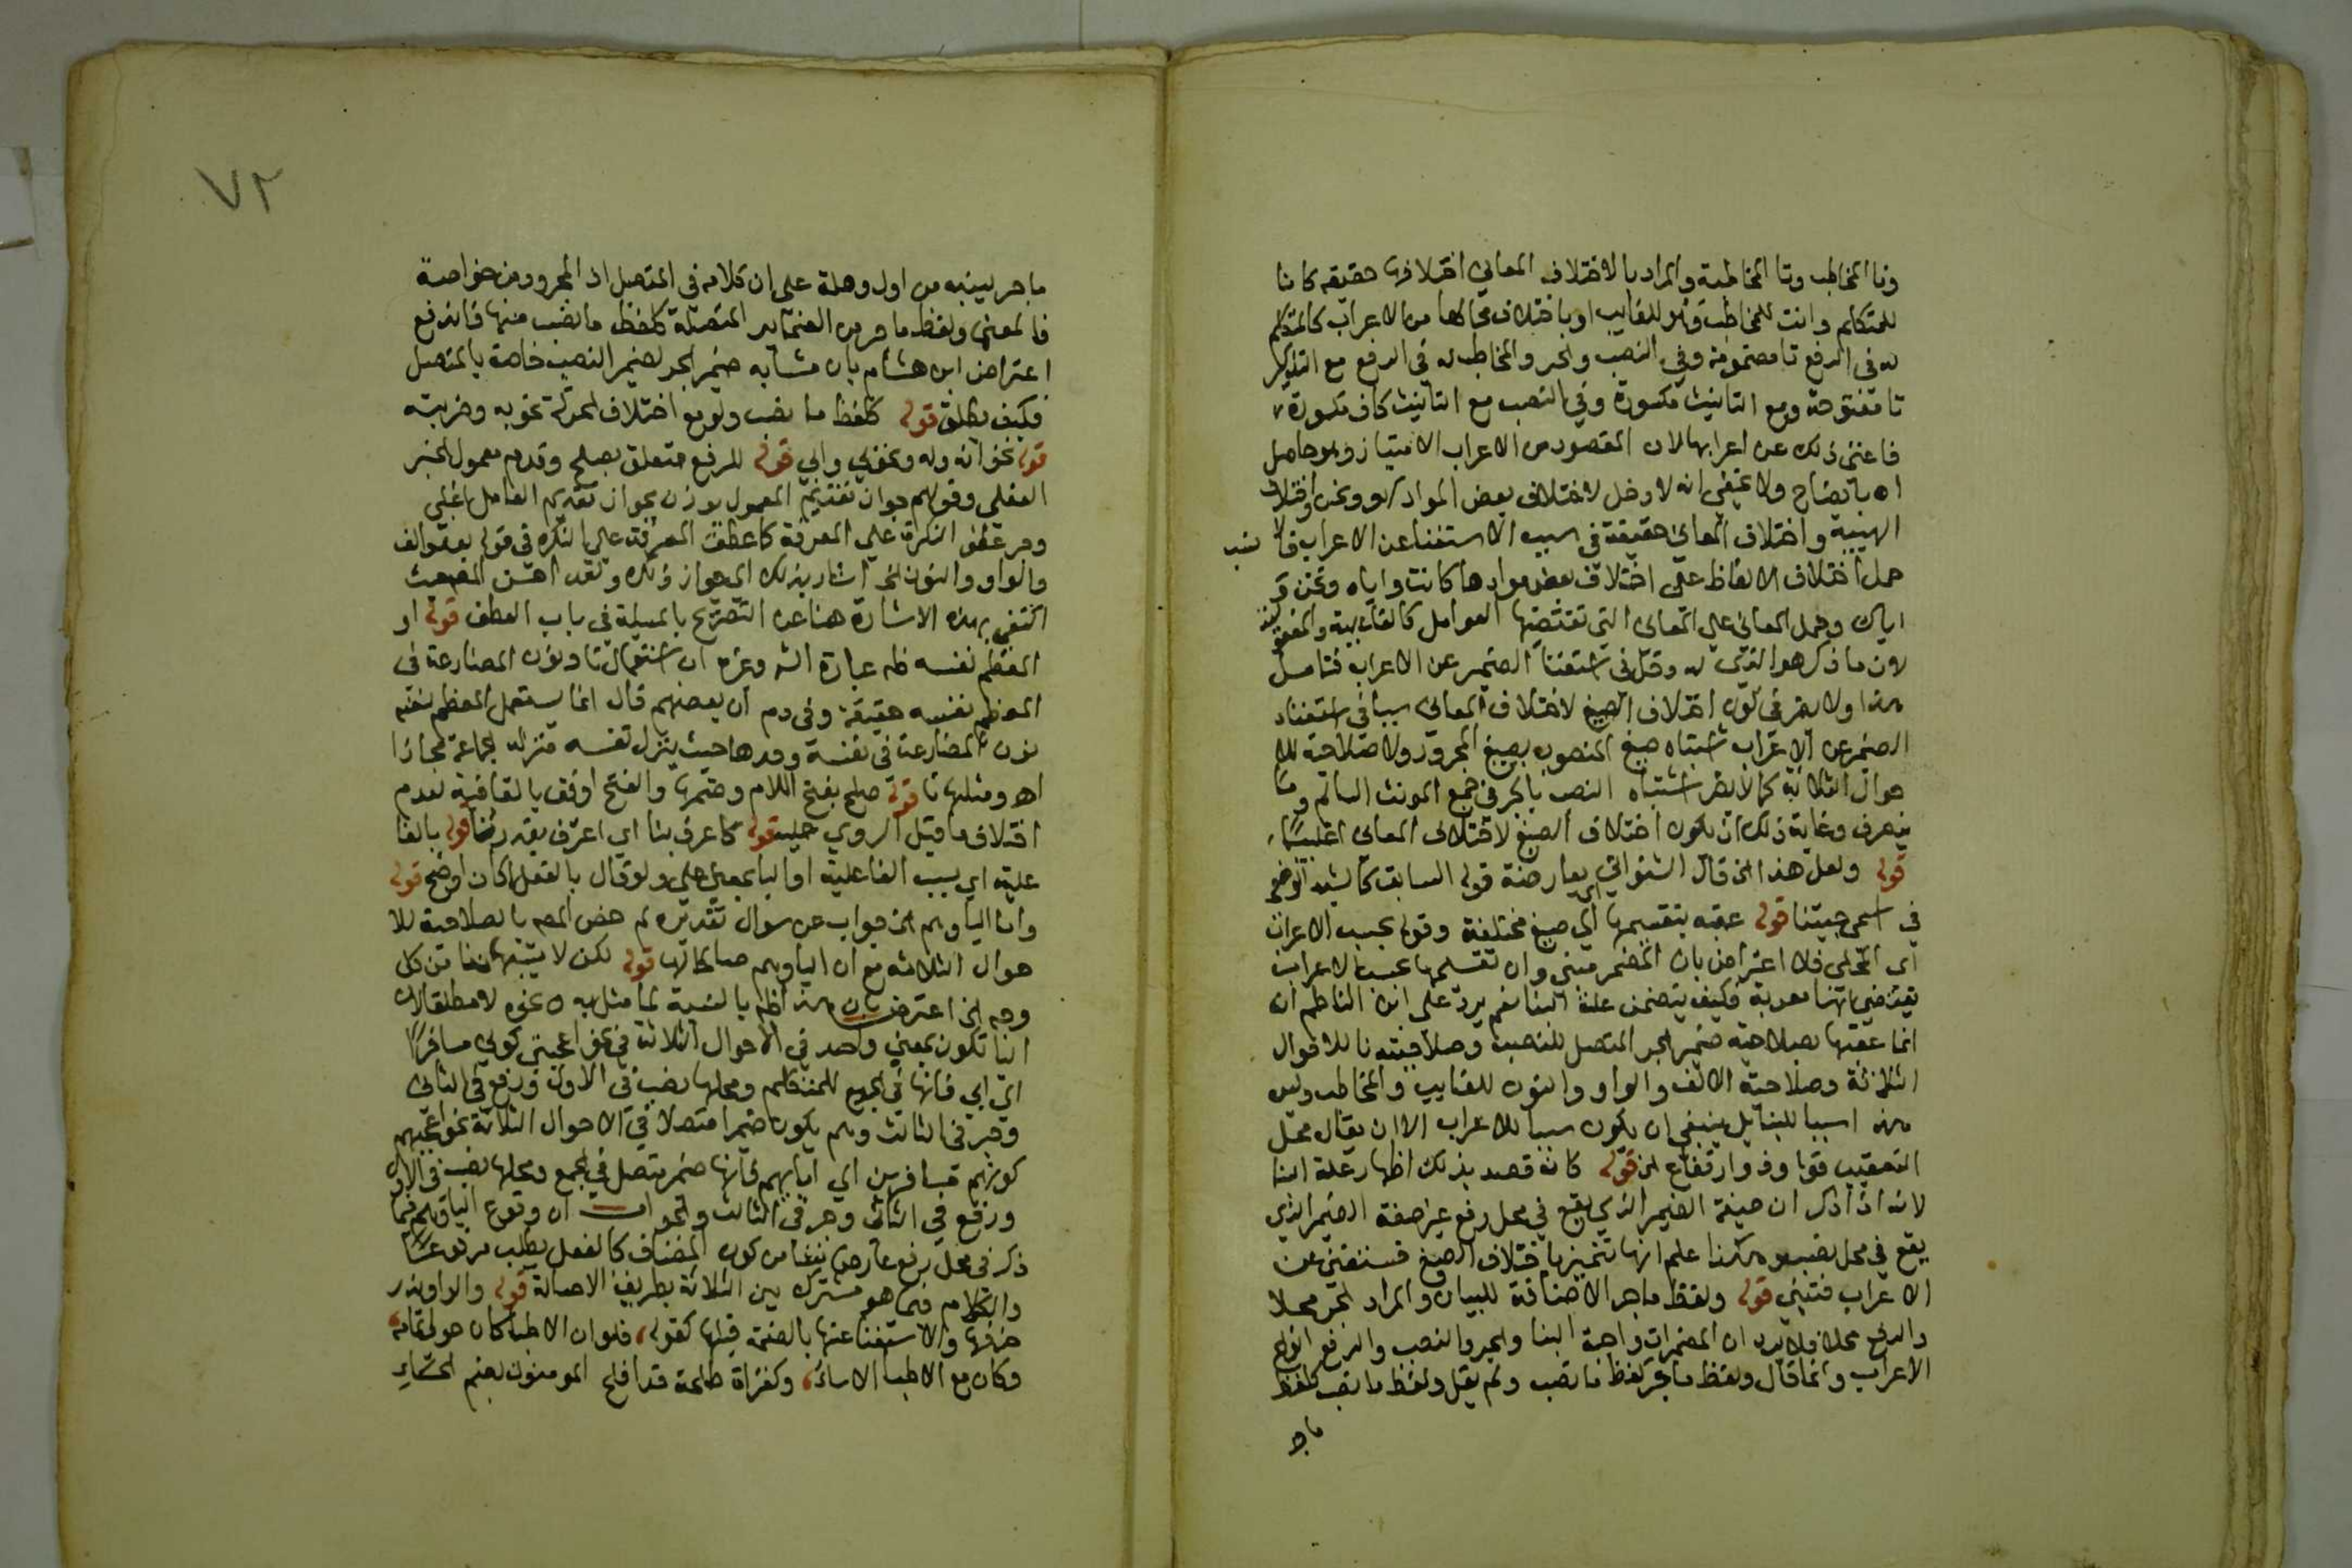 وتا المخاطب وتا المخاطبة والمراد بالاختلاف المعاني اختلافها حقيقة كانا
للمتكلم وانت للمخاطب وهو للغايب او باختلاف محالها من الاعراب كالمتكلم
له في الرفع تا مضمومة وفي النصب والجر والمخاطب له في الرفع مع التذكير
تا مفتوحة ومع التانيث مكسورة وفي النصب مع التانيث كاف مكسورة
فاغنى ذلك عن اعرابها لان المقصود من الاعراب الامتياز وهو حاصل
اه بايضاح ولا يخفى انه لا دخل لاختلاف بعض المواد كهو ونحن واختلاف
الهيئة واختلاف المعاني حقيقة في سبب الاستغنا عن الاعراب فا
حمل اختلاف الالفاظ على اختلاف بعض موادها كانت واياه ونحن و
اياك وحمل المعاني على المعاني التي تقتضيها العوامل كالفاعلية والمفعولية
لان ما ذكر هو الذي له دخل في استغنا الضمير عن الاعراب فتامل
هذا ولا يضر في كون اختلاف الصيغ لاختلاف المعاني سببا في استغناء
الضمير عن الاعراب اشتباه صيغ المنصوب بصيغ المجرور ولا صلاحية نا للا
حوال الثلاثة كما لا يضر اشتباه النصب بالجر في جمع المونث السالم وما لا
ينصرف وغاية ذلك ان يكون اختلاف الصيغ لاختلاف المعاني اغلبيا
قوله ولعل هذا الخ قال الشنواني يعارضة قوله السابق كالشبه الوضعي
في اسمي جيتنا قوله عقبه بتقسيمها اي صيغ مختلفة وقوله بحسب الاعراب
اي المحلي فلا اعتراض بان المضمر مبني وان تقسيمها بحسب الاعراب
يقتضي انها معربة فكيف يتضمن علة البنا نعم يرد على ابن الناظم ان
انما عقبها بصلاحية ضمير الجر المتصل للنصب وصلاحية نا للاحوال
الثلاثة وصلاحية الالف والواو والنون للغايب والمخاطب وليس
هذا سببا للبنا بل ينبغي ان يكون سببا للاعراب الا ان يقال محل
التعقيب قوله وذو ارتفاع الخ قوله كانه قصد بذلك اظهار علة البنا
لانه اذا ذكر ان صيغة الضمير الذي يقع في محل رفع غير صيغة الضمير الذي
يقع في محل نصب وهكذا علم انها تتميز باختلاف الصيغ فتستغني عن
الاعراب فتبنى قوله ولفظ ما جر الاضافة للبيان والمراد الجر محلا
والرفع محلا فلا يرد ان المضمرات واجبة البنا والجر والنصب والرفع انواع
الاعراب وانما قال ولفظ ما جر كلفظ ما نصب ولم يقل ولفظ ما نصب كلفظ
ما جر
٧٢
ما جر لينبه من اول وهلة على ان كلامه في المتصل اذ المجرور من خواصه
فالمعنى ولفظ ما جر من الضماير المتصلة كلفظ ما نصب منها فاندفع
اعتراض ابن هشام بان مشابه ضمير الجر لضمير النصب خاصة بالمتصل
فكيف يطلق قوله كلفظ ما نصب ولو مع اختلاف الحركة نحو به وضربته
قوله نحو انه وله ونحو لي واني قوله للرفع متعلق بصلح وقدم معمول الخبر
الفعلي وقولهم جواز تقديم المعمول يوذن بجواز تقديم العامل اغلبي
ومر عطف النكرة على المعرفة كما عطف المعرفة على النكرة في قوله بعد والف
والواو والنون الخ اشار بذلك الى جواز ذلك ولقد احسن المص حيث
اكتفى بهذه الاشارة هنا عن التصريح بالمسيلة في باب العطف قوله او
المعظم نفسه ظه عبارة الش وغيره ان استعمال نا ونون المضارعة في
المعظم نفسه حقيقة وفي دم ان بعضهم قال انما يستعمل المعظم نفسه
نون المضارعة في نفسه وحدها حيث ينزل نفسه منزلة الجماعة مجازا
اه ومثلها نا قوله صلح بفتح اللام وضمها والفتح اوفق بالقافية لعدم
اختلاف ما قبل الروي عليه قوله كاعرف بنا اي اعترف بقدرنا قوله بالفا
علية اي بسبب الفاعلية او البا بمعنى على ولو قال بالفعل لكان اوضح قوله
واما اليا وهم الخ جواب عن سوال تقديره لم خص المص نا بصلاحية للا
حوال الثلاثة مع ان اليا وهم صالحا لها قوله لكن لا يشبهان نا من كل
وجه الخ اعترض بان هذا ظه بالنسبة لما مثل به ه نحوه لا مطلقا لان
اليا تكون بمعنى واحد في الاحوال الثلاثة في نحو اعجبني كوني مسافرا
الى ابي فانها في الجميع للمتكلم ومحلها نصب في الاول ورفع في الثاني
وجر في الثالث وهم يكون ضميرا متصلا في الاحوال الثلاثة نحو اعجبهم
كونهم مسافرين الى ابايهم فانها ضمير متصل في الجميع ومحلها نصب في الاول
ورفع في الثاني وجر في الثالث والجواب ان وقوع اليا وهم فيما
ذكر في محل رفع عارض نشا من كون المضاف كالفعل يطلب مرفوعا
والكلام فيما هو مشترك بين الثلاثة بطريق الاصالة قوله والواو يندر
حذفها والاستغنا عنها بالضمة قبلها كقوله فلو ان الاطبا كان حولي تمامه
وكان مع الاطبا الاساة وكقراة طلحة قد افلح المومنون بضم الحاء